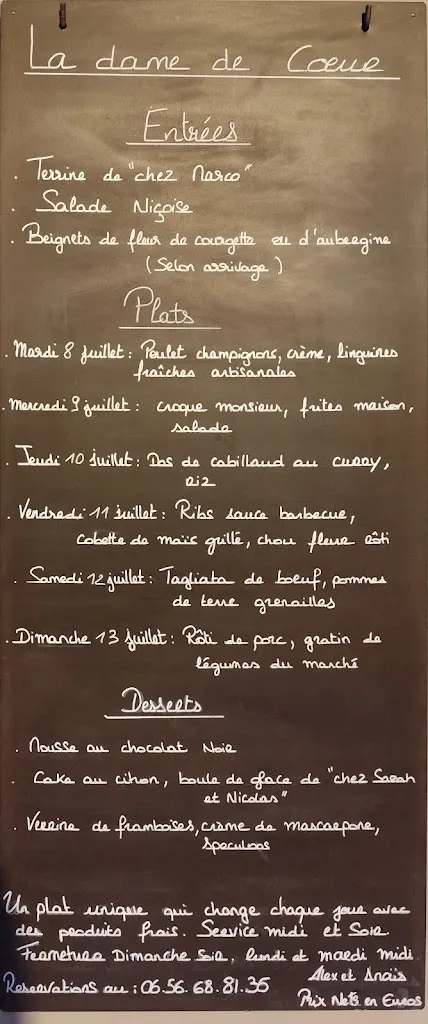 La dame de Coeur
Entrées
. Terrine de "chez Marco"
. Salade Niçoise
. Beignets de fleur de courgette ou d'aubergine
(Selon arrivage)
Plats
. Mardi 8 juillet : Poulet champignons, crème, linguines
fraîches artisanales
. Mercredi 9 juillet : croque monsieur, frites maison,
salade
. Jeudi 10 juillet : Dos de cabillaud au curry,
riz
. Vendredi 11 juillet : Ribs sauce barbecue,
cobette de maïs grillé, chou fleur rôti
. Samedi 12 juillet : Tagliata de boeuf, pommes
de terre grenailles
. Dimanche 13 juillet : Rôti de porc, gratin de
légumes du marché
Desserts
. Mousse au chocolat Noir
. Cake au citron, boule de glace de "chez Sarah
et Nicolas"
. Verrine de framboises, crème de mascarpone,
Speculoos
Un plat unique qui change chaque jour avec
des produits frais. Service midi et Soir.
Fermeture Dimanche Soir, lundi et mardi midi
Alex et Anaïs
Reservations au : 06.56.68.81.35
Prix Nets en Euros